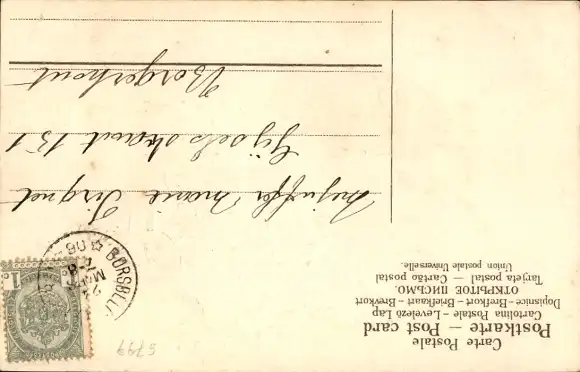 Carte Postale
Postkarte — Post card
Cartolina Postale – Levelező Lap
Dopisnice – Brefkort – Briefkaart – Brevkort
ОТКРЫТОЕ ПИСЬМО.
Tarjeta postal — Cartão postal
Union postale Universelle.
5799
Mejuffer Marie
Gijsels straat 151
Borgerhout
1c 1c